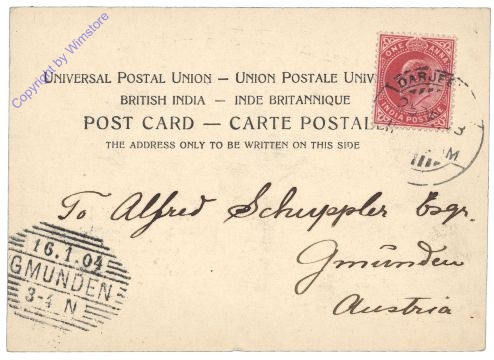 Copyright by Wimstore
ONE ANNA
INDIA POSTAGE
DARJEE
UNIVERSAL POSTAL UNION — UNION POSTALE UNIV
BRITISH INDIA — INDE BRITANNIQUE
POST CARD — CARTE POSTALE
THE ADDRESS ONLY TO BE WRITTEN ON THIS SIDE
To Alfred Schuppler Esqr.
Gmünden
Austria
16.1.04
GMUNDEN
3-4 N